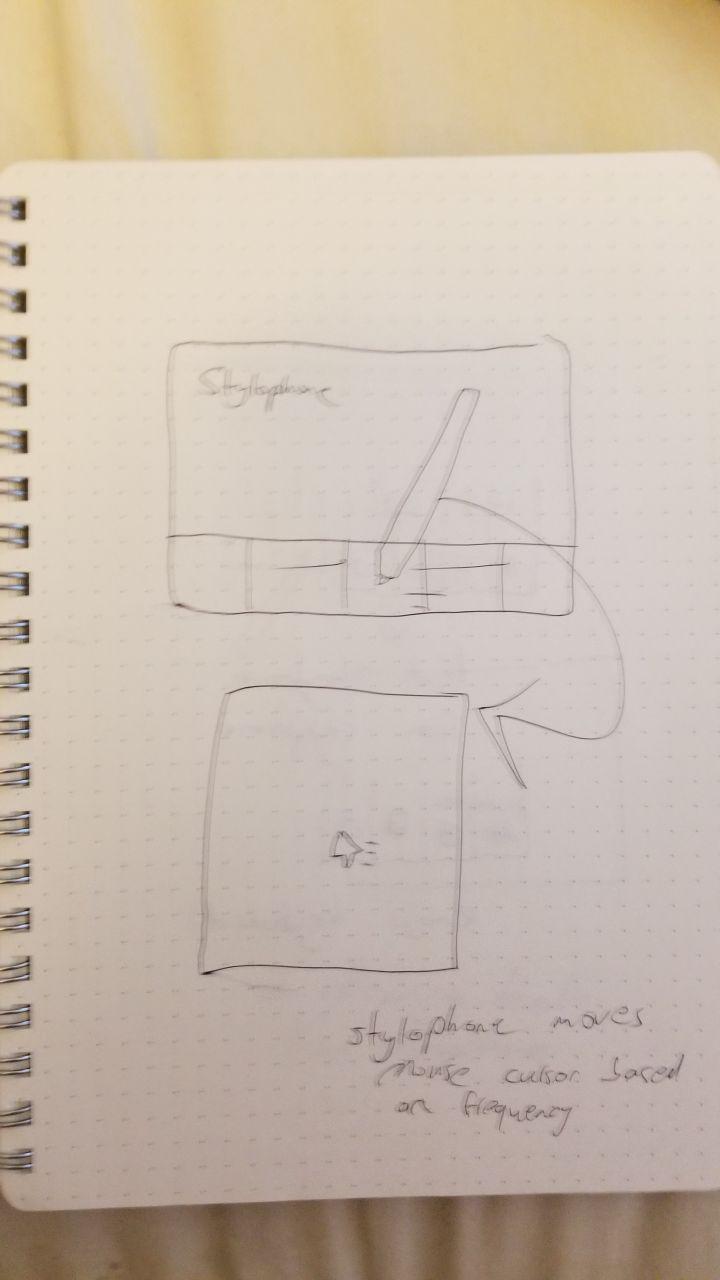 Stylophone
stylophone moves
mouse cursor based
on frequency